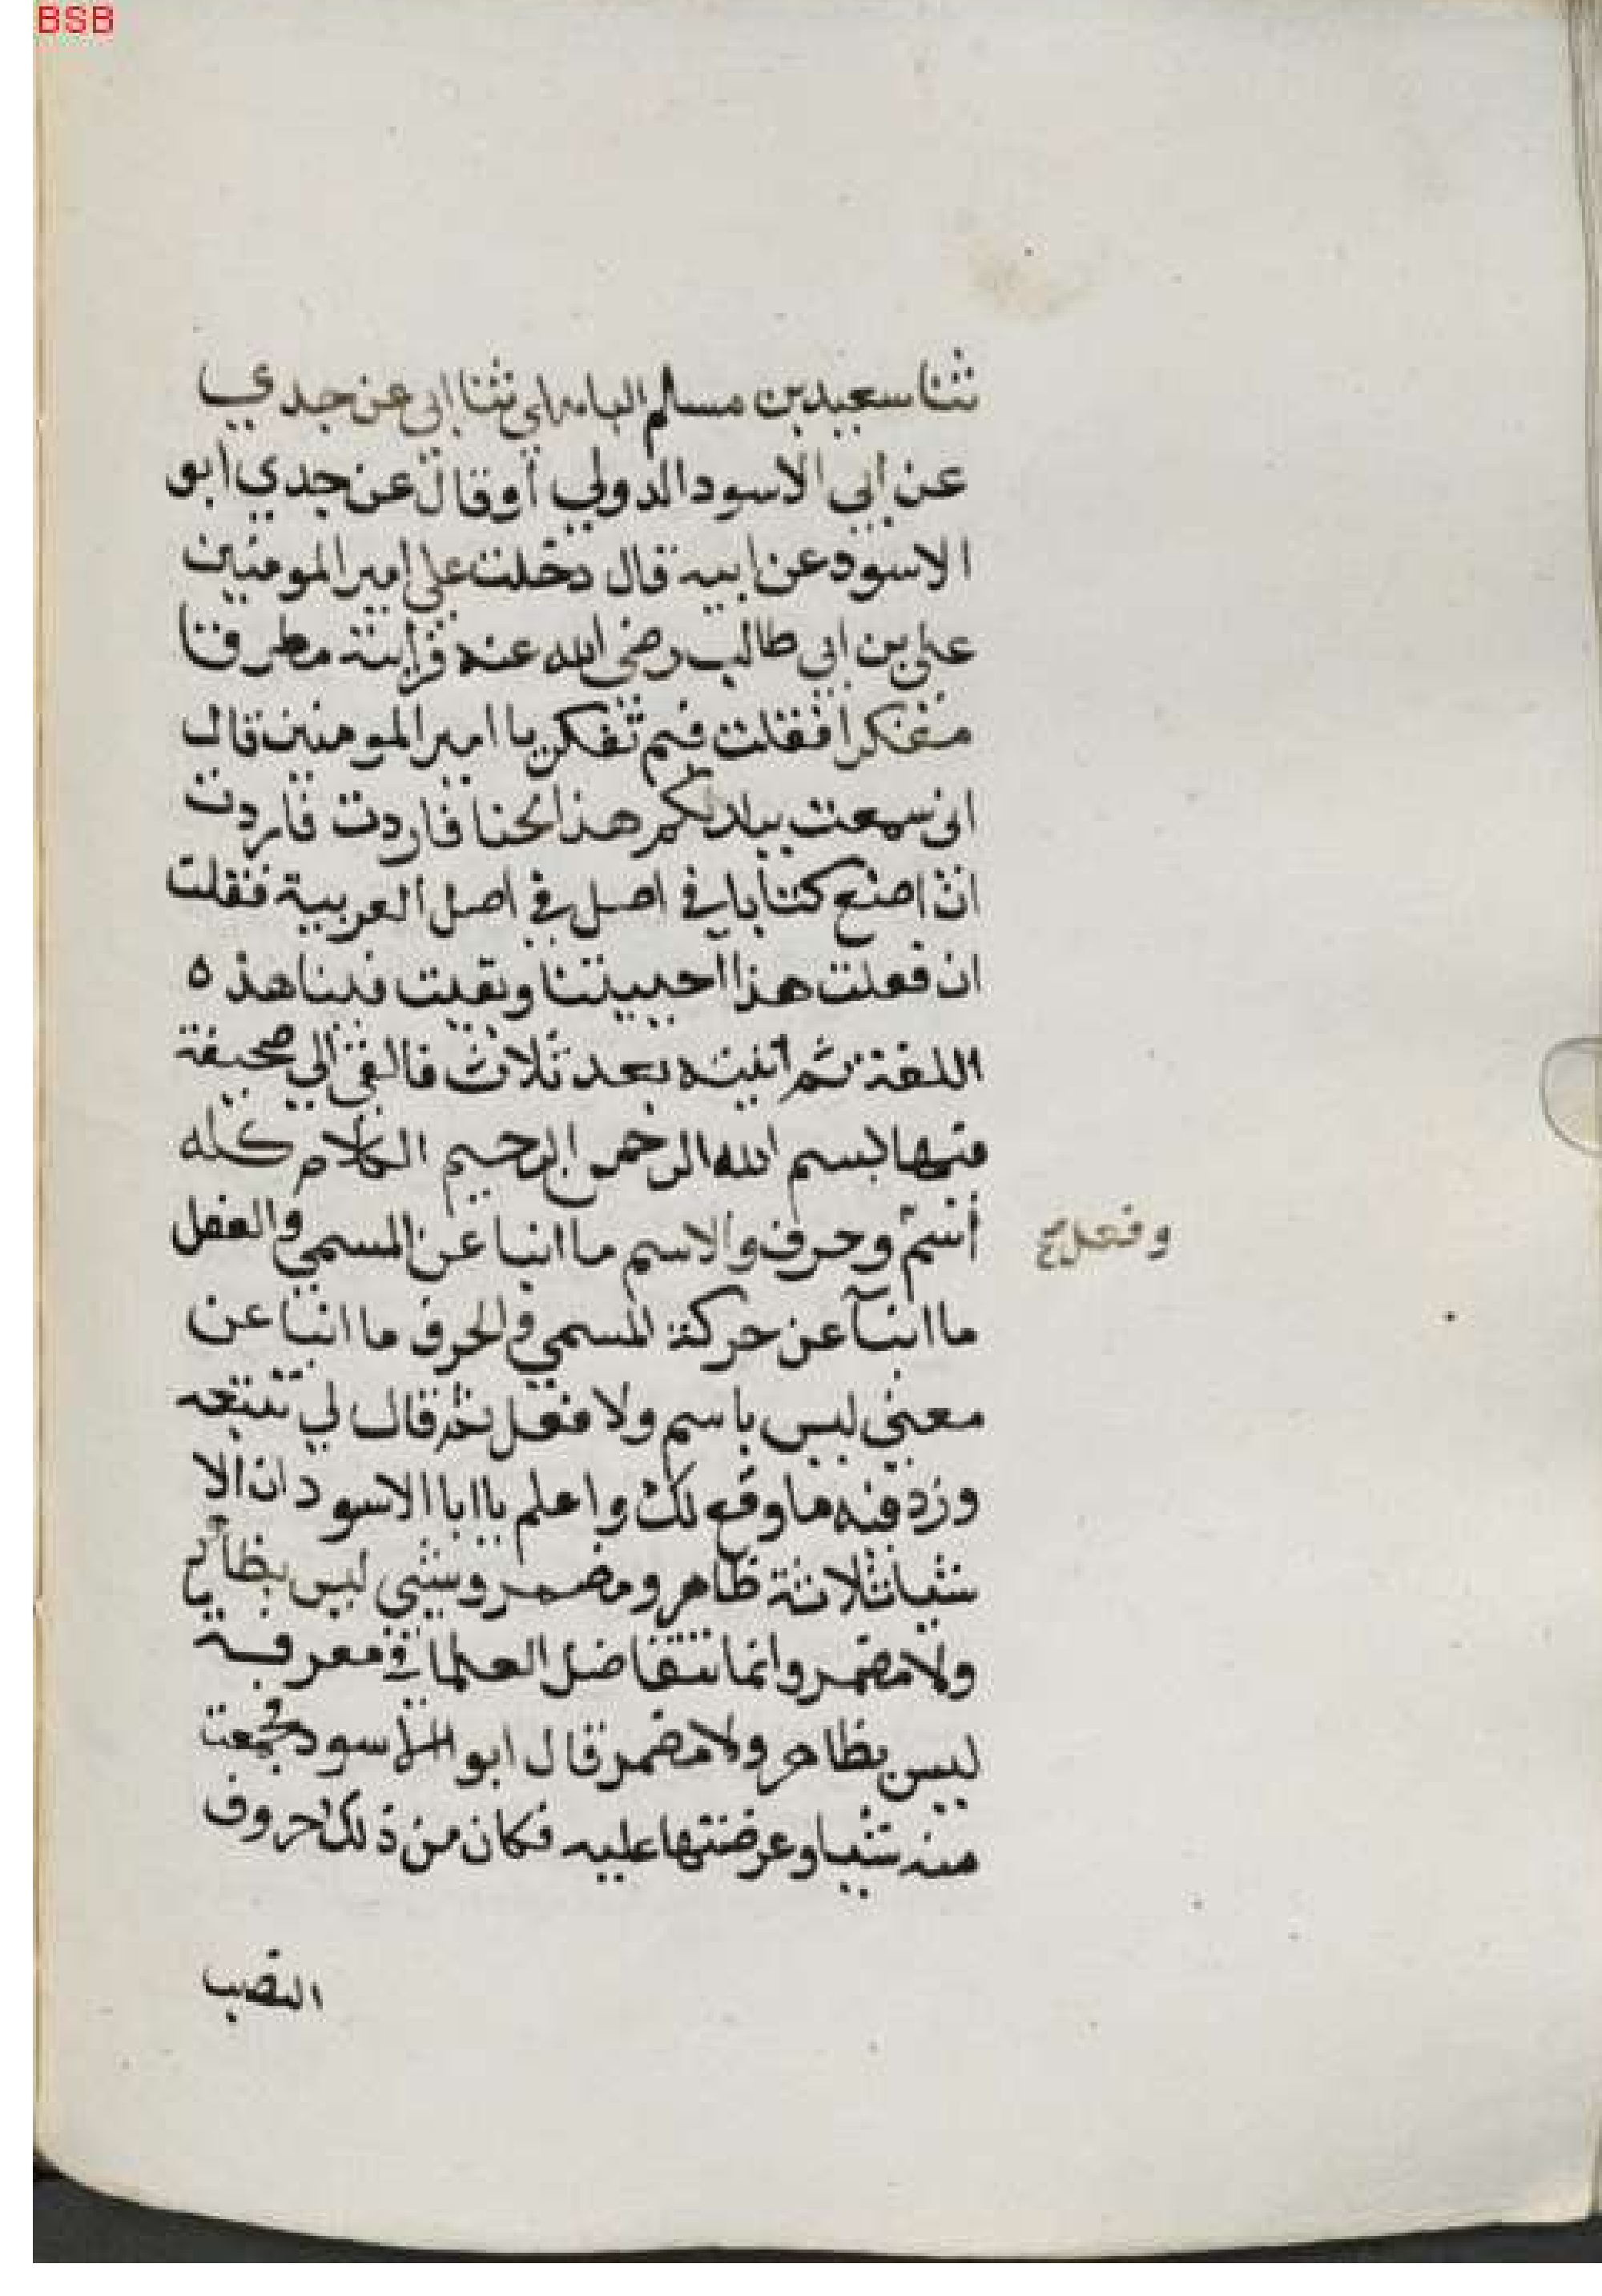 BSB
ثنا سعيد بن مسالم الباهلي ثنا ابي عن جدي
عن ابي الاسود الدولي أو قال عن جدي ابو
الاسود عن ابيه قال دخلت علي امير المومنين
علي بن ابي طالب رضي الله عنه فرايته مطرقا
متفكرا فقلت فيم تفكر يا امير المومنين قال
اني سمعت ببلدكم هذا لحنا فاردت فاردت
ان اصنع كتابا في اصل في اصل العربية فقلت
ان فعلت هذا احييتنا وبقيت فينا هذه
اللغة ثم اتيته بعد ثلاث فالقي الي صحيفة
فيها بسم الله الرحمن الرحيم الكلام كله
أسم وحرف والاسم ما انبا عن المسمي والفعل
وفعل صح
ما انبآ عن حركة المسمي والحرف ما انبا عن
معني ليس باسم ولا فعل ثم قال لي تتبعه
وزد فيه ما وقع لك واعلم يا ابا الاسود ان الا
شيا ثلاثة ظاهر ومضمر وشي ليس بظاهر
ولا مضمر وانما تتفاضل العلما في معرفة
ليس بظاهر ولا مضمر قال ابو الاسود فجمعت
منه شيا وعرضتها عليه فكان من ذلك حروف
النصب